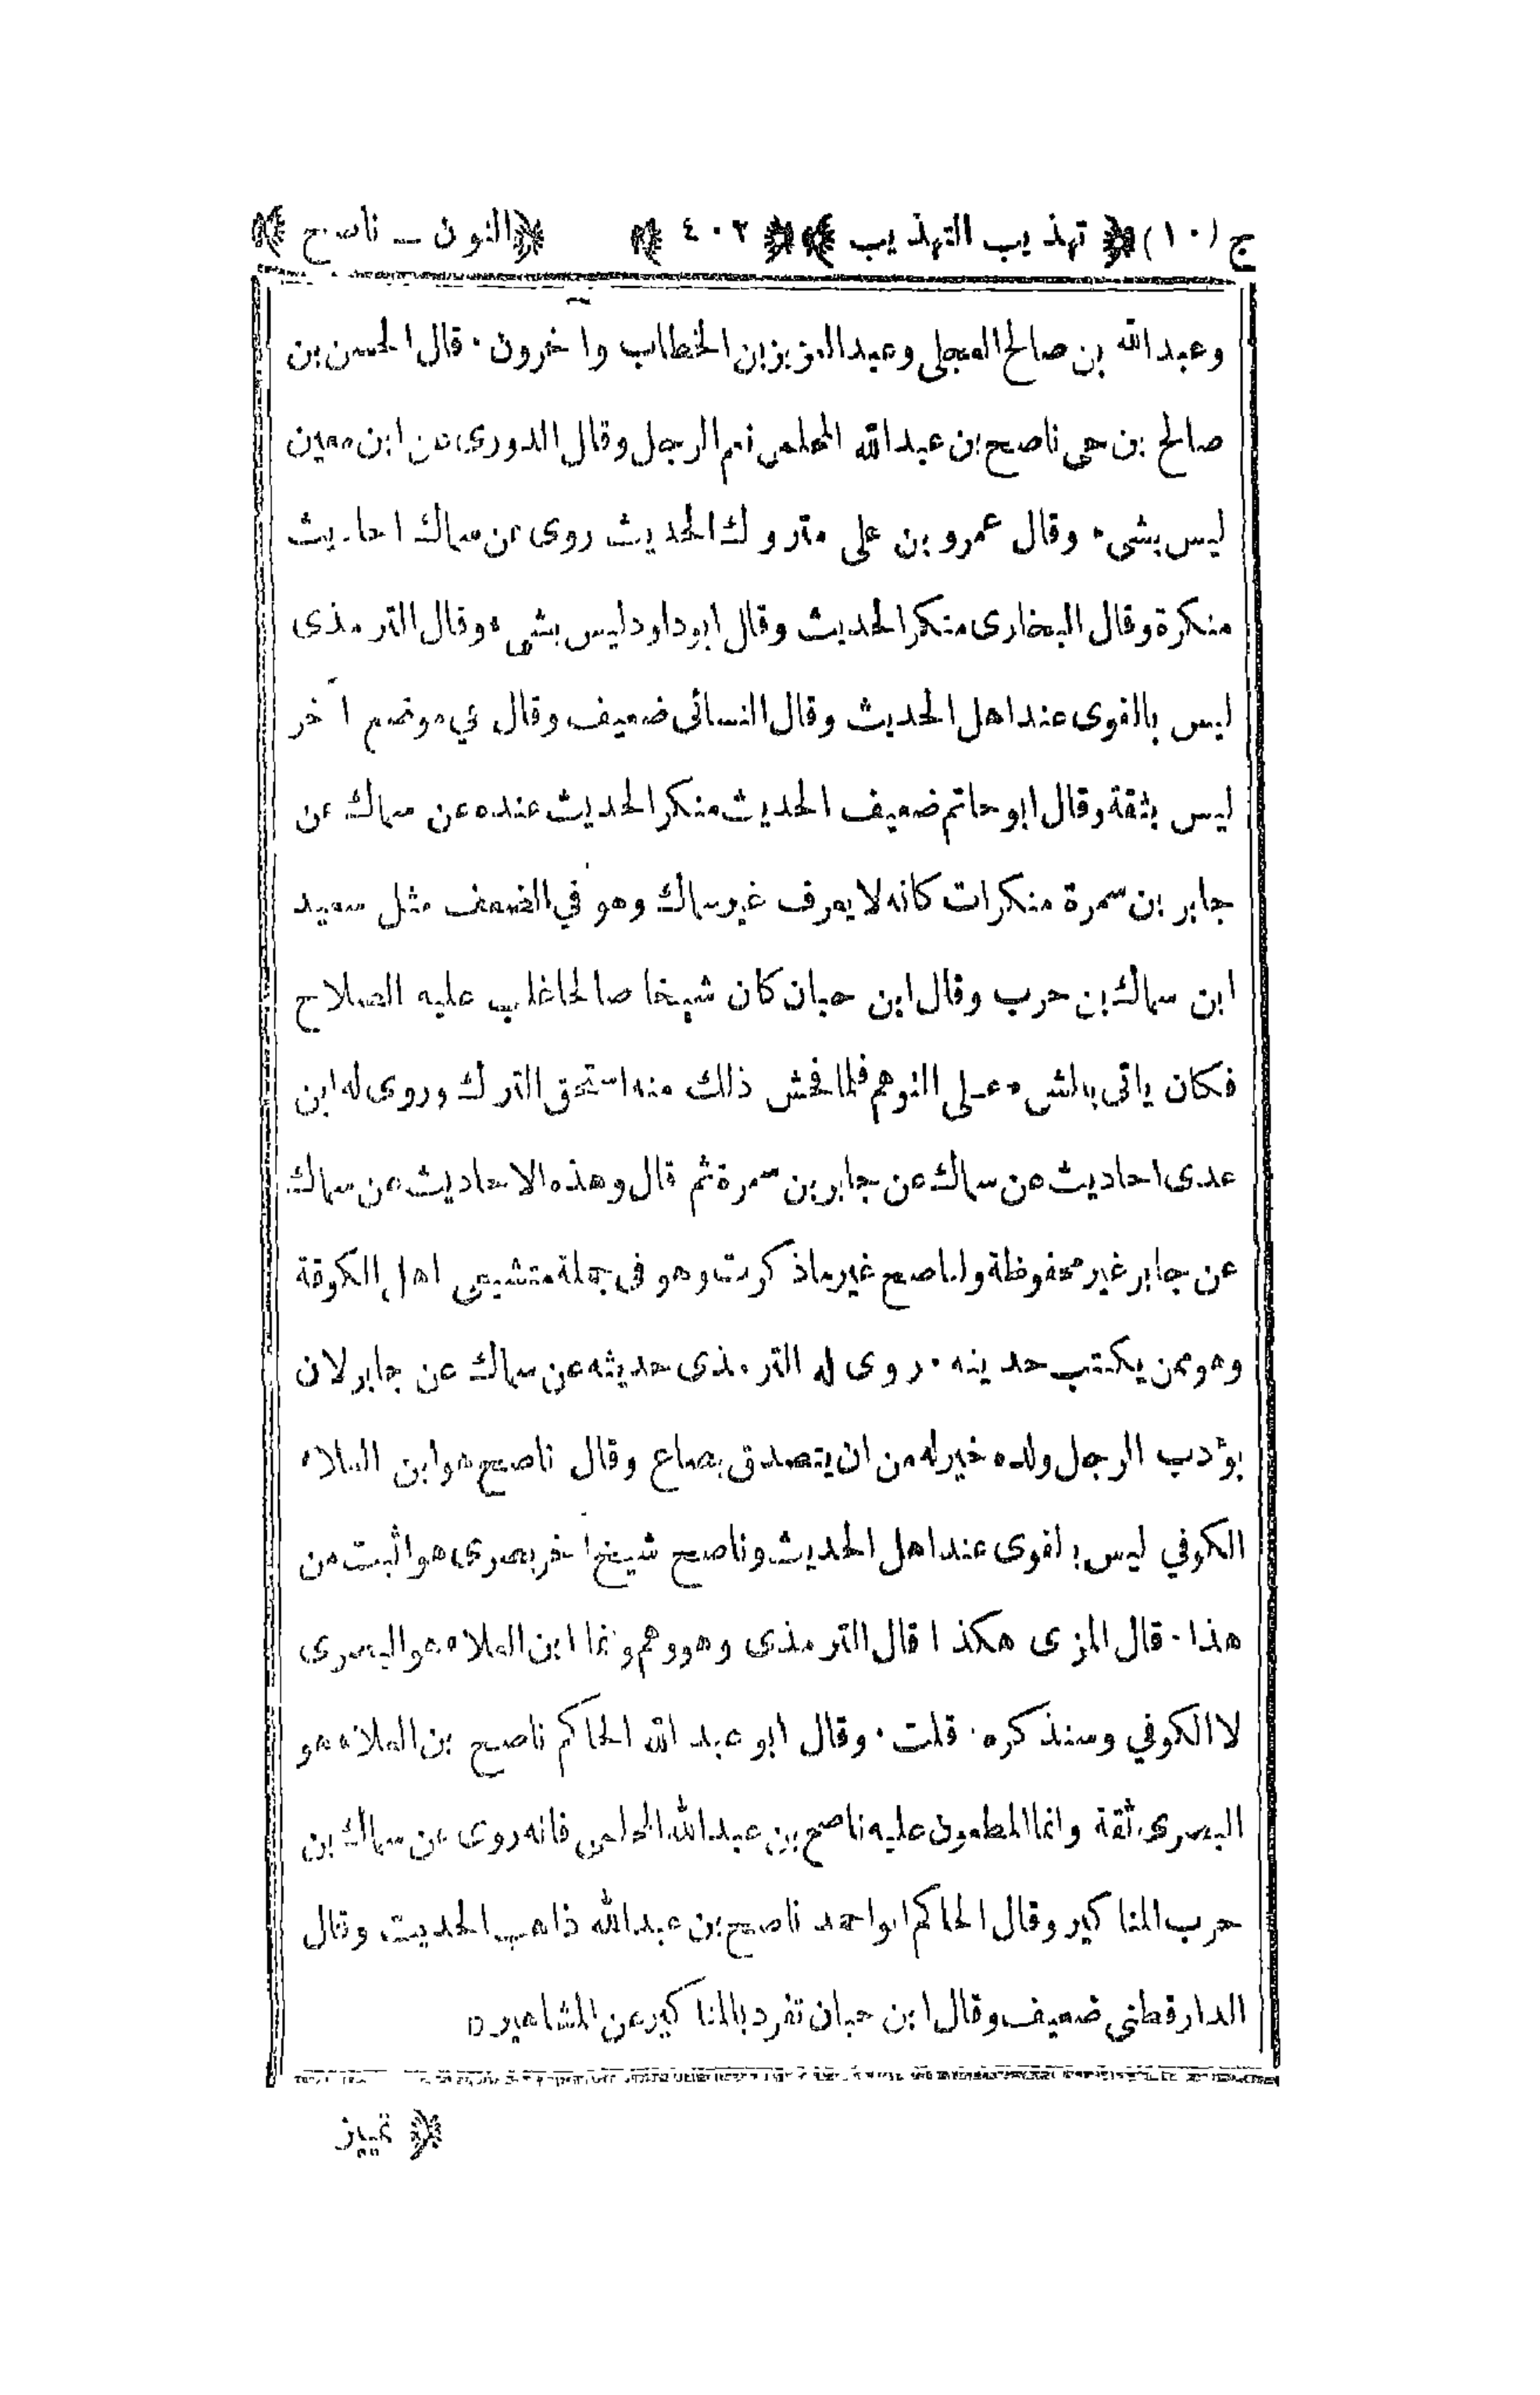 ج (١٠) ﴿ تهذيب التهذيب ﴾ ﴿ ٤٠٢ ﴾ ﴿ النون ــ ناصح ﴾
وعبدالله بن صالح العجلى وعبدالعزيز بن الخطاب وآخرون ٠ قال الحسن بن
صالح بن حى ناصح بن عبدالله المحلمى نعم الرجل وقال الدورى عن ابن معين
ليس بشىء وقال عمرو بن على متروك الحديث روى عن سماك احاديث
منكرة وقال البخارى منكر الحديث وقال ابوداود ليس بشىء وقال الترمذى
ليس بالقوى عند اهل الحديث وقال النسائى ضعيف وقال في موضع آخر
ليس بثقة وقال ابو حاتم ضعيف الحديث منكر الحديث عنده عن سماك عن
جابر بن سمرة منكرات كانه لا يعرف غير سماك وهو في الضعف مثل سعيد
ابن سماك بن حرب وقال ابن حبان كان شيخا صالحا غلب عليه الصلاح
فكان ياتى بالشىء على التوهم فلما فحش ذلك منه استحق الترك وروى له ابن
عدى احاديث عن سماك عن جابر بن سمرة ثم قال وهذه الاحاديث عن سماك
عن جابر غير محفوظة ولناصح غير ماذكرت وهو فى جملة متشيعى اهل الكوفة
وهو ممن يكتب حديثه ٠ روى له الترمذى حديثه عن سماك عن جابر لان
يؤدب الرجل ولده خير له من ان يتصدق بصاع وقال ناصح هو ابن العلاء
الكوفي ليس بالقوى عند اهل الحديث وناصح شيخ آخر بصرى هو اثبت من
هذا ٠ قال المزى هكذا قال الترمذى وهو وهم وانما ابن العلاء هو البصرى
لا الكوفي وسنذكره ٠ قلت ٠ وقال ابو عبد الله الحاكم ناصح بن العلاء هو
البصرى ثقة وانما المطعون عليه ناصح بن عبدالله المحلمى فانه روى عن سماك بن
حرب المناكير وقال الحاكم ابو احمد ناصح بن عبدالله ذاهب الحديث وقال
الدارقطنى ضعيف وقال ابن حبان تفرد بالمناكير عن المشاهير ٥
﴿ تمييز